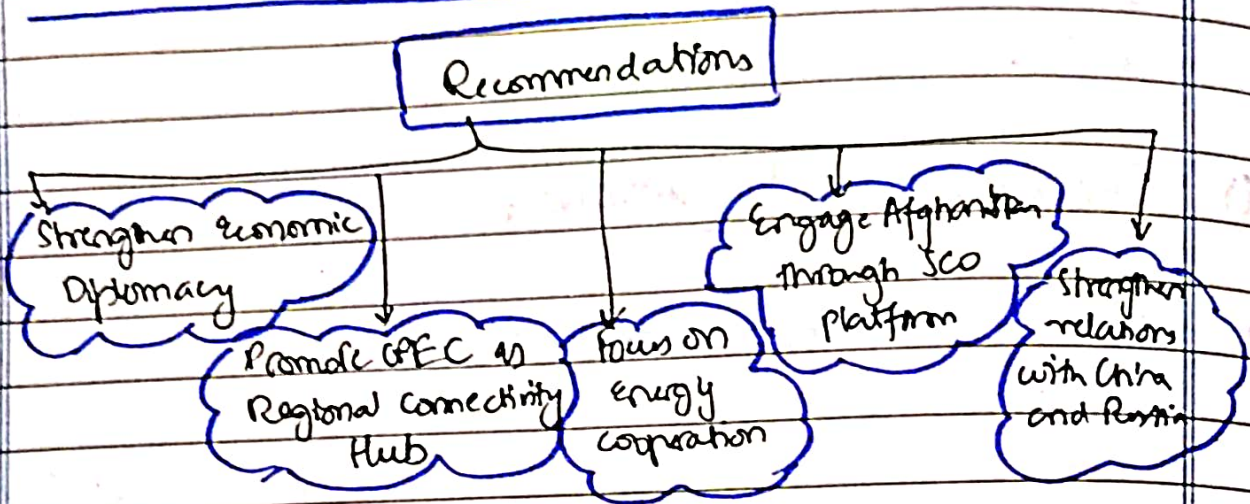 Recommendations
Strengthen Economic
Diplomacy
Promote CPEC as
Regional Connectivity
Hub
Focus on
Energy
cooperation
Engage Afghanistan
through SCO
platform
Strengthen
relations
with China
and Russia